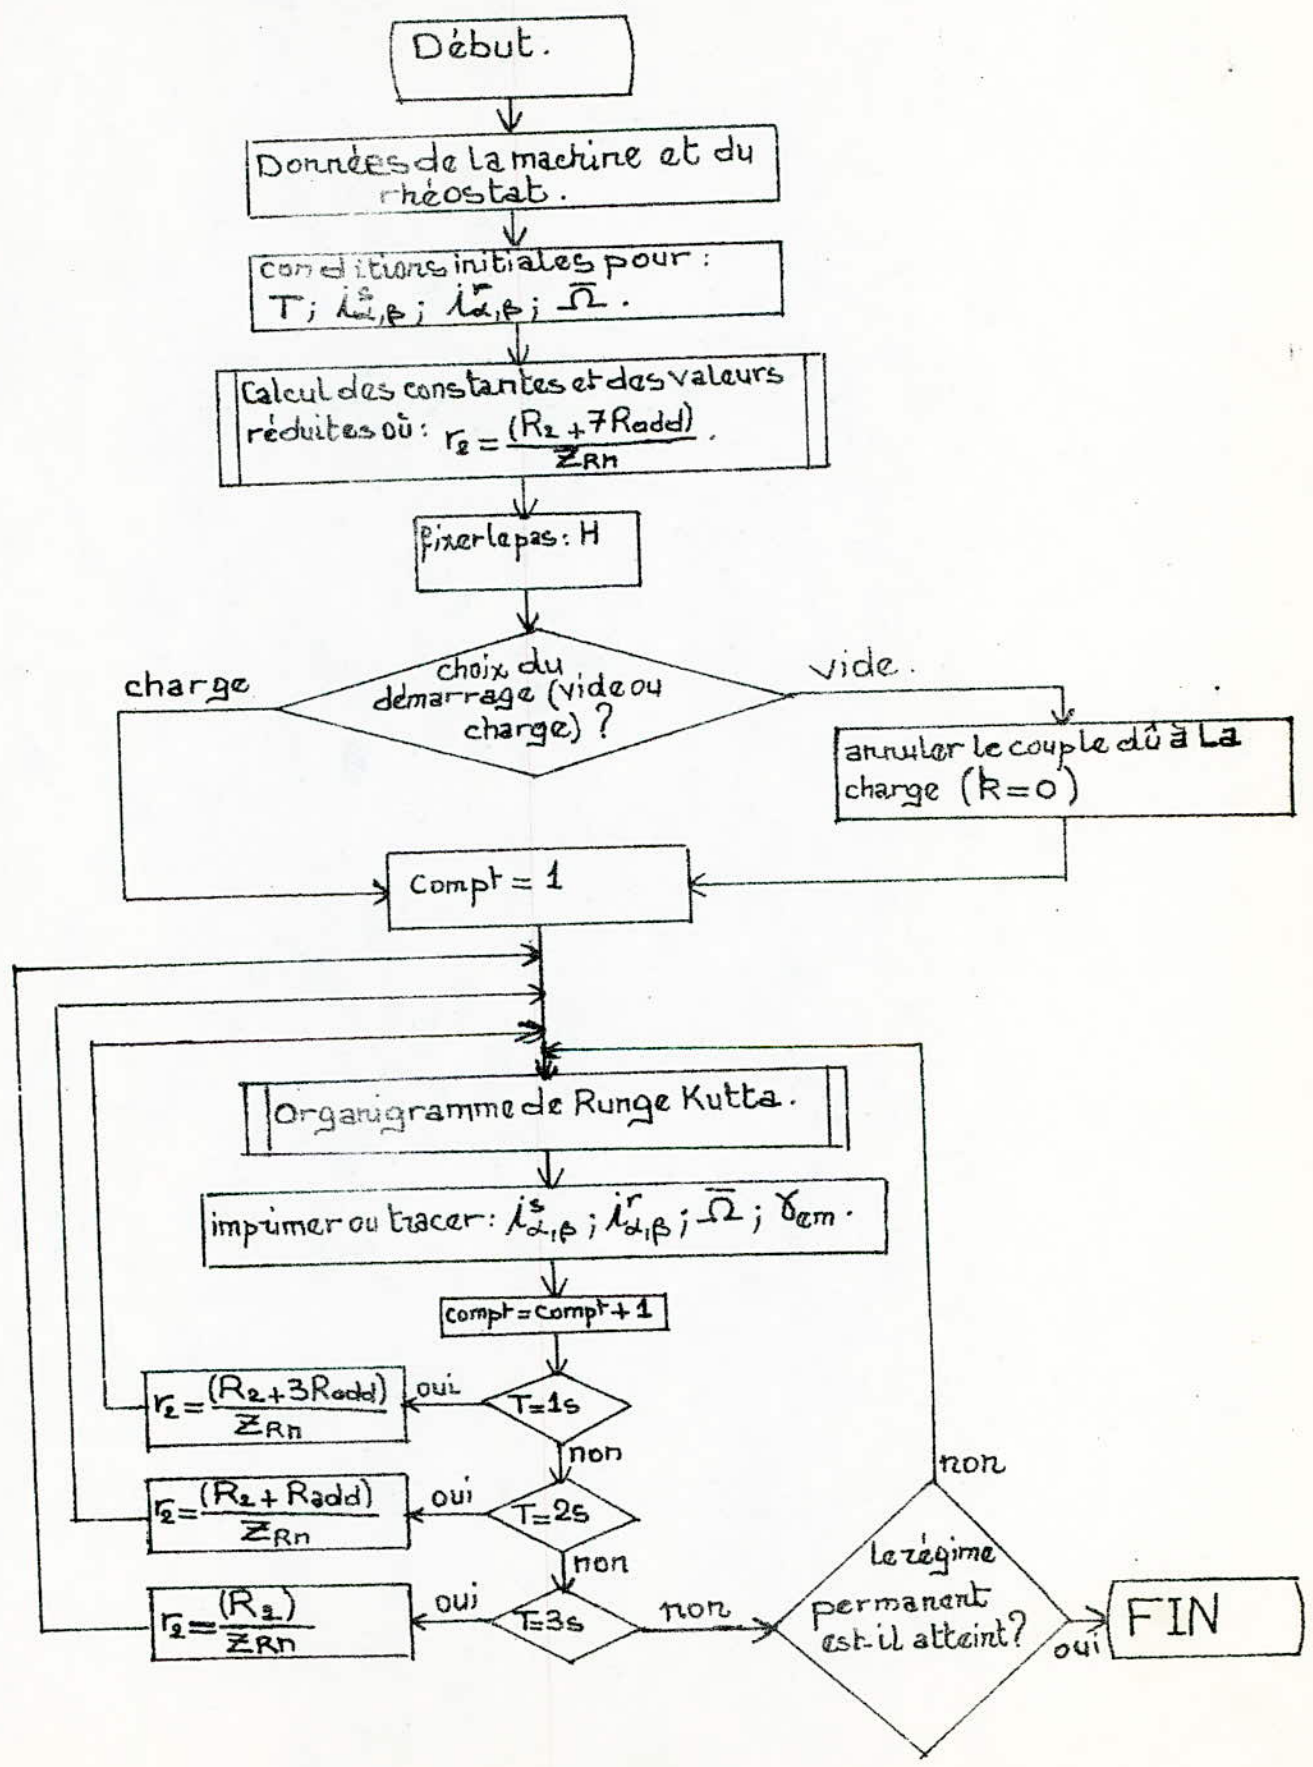 Début.
Données de la machine et du
rhéostat.
conditions initiales pour :
T; i^s_α,β; i^r_α,β; Ω̅.
Calcul des constantes et des valeurs
réduites où : r₂ = (R₂ + 7Radd) / Z_Rn .
fixer le pas : H
choix du
démarrage (vide ou
charge) ?
charge
vide.
annuler le couple dû à La
charge (k=0)
Compt = 1
Organigramme de Runge Kutta.
imprimer ou tracer : i^s_α,β ; i^r_α,β ; Ω̅ ; γem.
compt = compt + 1
T=1s
oui
r₂ = (R₂ + 3Radd) / Z_Rn
non
T=2s
oui
r₂ = (R₂ + Radd) / Z_Rn
non
T=3s
oui
r₂ = (R₂) / Z_Rn
non
Le régime
permanent
est-il atteint?
non
oui
FIN